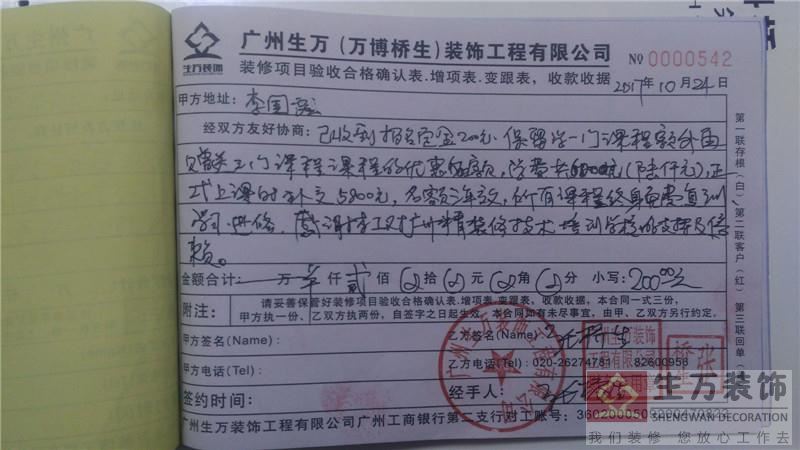 生万装饰
广州生万(万博桥生)装饰工程有限公司
№ 0000542
装修项目验收合格确认表.增项表.变跟表，收款收据
2017年10月24日
甲方地址:
经双方友好协商: 已收到报名定金200元.保留学一门课程额外再
门课程课程的优惠名额,学费共6000元(陆仟元),正
式上课时补交5800元,名额三年有效,所有课程终身免费复训
学习.进修,感谢
装修技术培训学校的支持及信
赖。
金额合计: 万 仟 贰 佰 拾 元 角 分 小写: 200.00元
附注: 请妥善保管好装修项目验收合格确认表.增项表.变跟表，收款收据，本合同一式三份，
甲方执一份、乙双方执两份，自签字之日起生效。本合同如有未尽事宜，由甲、乙双方另行约定。
甲方签名(Name):
乙方签名(Name)
甲方电话(Tel):
乙方电话(Tel):020-26274781 82600958
签约时间:
经手人:
广州生万装饰工程有限公司广州工商银行第二支行对工账号:
第一联存根(白) 第二联客户(红) 第三联回单
生万装饰
SHENGWAN DECORATION
我们装修 您放心工作去